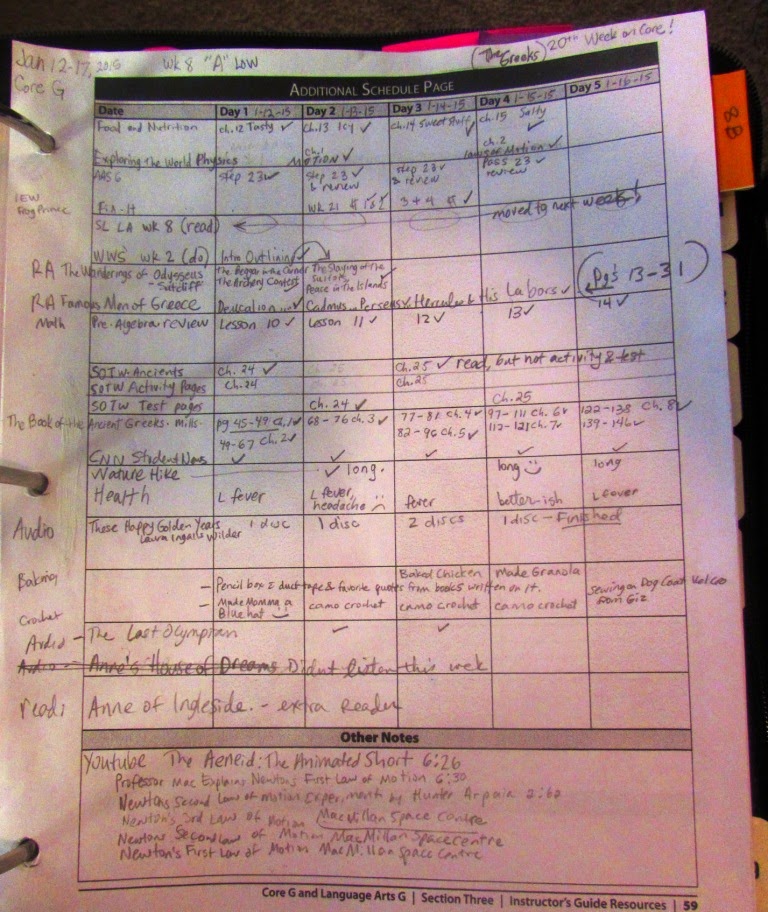 Jan 12-17, 2015 Wk 8 "A" LOW (The Greeks) 20th Week on Core!
Core G
ADDITIONAL SCHEDULE PAGE
Date Day 1 1-12-15 Day 2 1-13-15 Day 3 1-14-15 Day 4 1-15-15 Day 5 1-16-15
Food and Nutrition ch.12 Tasty ✓ ch.13 Icy ✓ ch.14 Sweet Stuff ✓ ch.15 Salty ✓
Exploring the World Physics Ch.1 MOTION ✓ ch.2 Laws of Motion ✓
AAS 6 Step 23 ✓ Step 23 ✓ & review step 23 ✓ & review pass 23 ✓ review
IEW Frog Prince Fix-It WK 21 # 1 & 2 3 + 4 # ✓
SL LA WK 8 (read) moved to next week!
WWS WK 2 (do) Intro Outlining ✓
RA The Wanderings of Odysseus - Sutcliff The Beggar in the Corner The Archery Contest The Slaying of the Suitors Peace in the Islands (Pg's 13-31)
RA Famous Men of Greece Deucalion ✓ Cadmus, Perseus ✓ Hercules & His Labors ✓
Math Pre-Algebra review Lesson 10 ✓ Lesson 11 ✓ 12 ✓ 13 ✓ 14 ✓
SOTW-Ancients Ch. 24 ✓ Ch.25 ✓ read, but not activity & test
SOTW Activity Pages Ch.24 Ch.25
SOTW Test pages Ch.24 ✓ Ch.25
The Book of the Ancient Greeks - Mills - pg 45-49 ch.1 ✓ 68-76 ch.3 ✓ 77-81 Ch.4 ✓ 97-111 Ch. 6 ✓ 122-138 Ch. 8 ✓
49-67 Ch.2 ✓ 82-96 Ch.5 ✓ 112-121 Ch.7 ✓ 139-146 ✓
CNN Student News ✓ ✓ ✓ ✓ ✓
Nature Hike ✓ long. long long
Health L fever L fever, headache fever better-ish L fever
Audio These Happy Golden Years Laura Ingalls Wilder 1 disc 1 disc 2 discs 1 disc - Finished
Baking Baked Chicken Made Granola
- Pencil box & duct tape & favorite quotes from books written on it. Sewing on Dog Coat
Crochet - Made Momma a Blue hat camo crochet camo crochet camo crochet
Audio - The Last Olympian ✓
Audio - Anne's House of Dreams Didn't listen this week
read: Anne of Ingleside. - extra Reader
Other Notes
Youtube The Aeneid: The Animated Short 6:26
Professor Mac Explains Newton's First Law of Motion 6:30
Newtons Second Law of Motion Experiment by Hunter
Newton's 3rd Law of Motion MacMillan Space Centre
Newtons Second Law of Motion MacMillan Space centre
Newton's First Law of Motion MacMillan Space Centre
Core G and Language Arts G | Section Three | Instructor's Guide Resources | 59